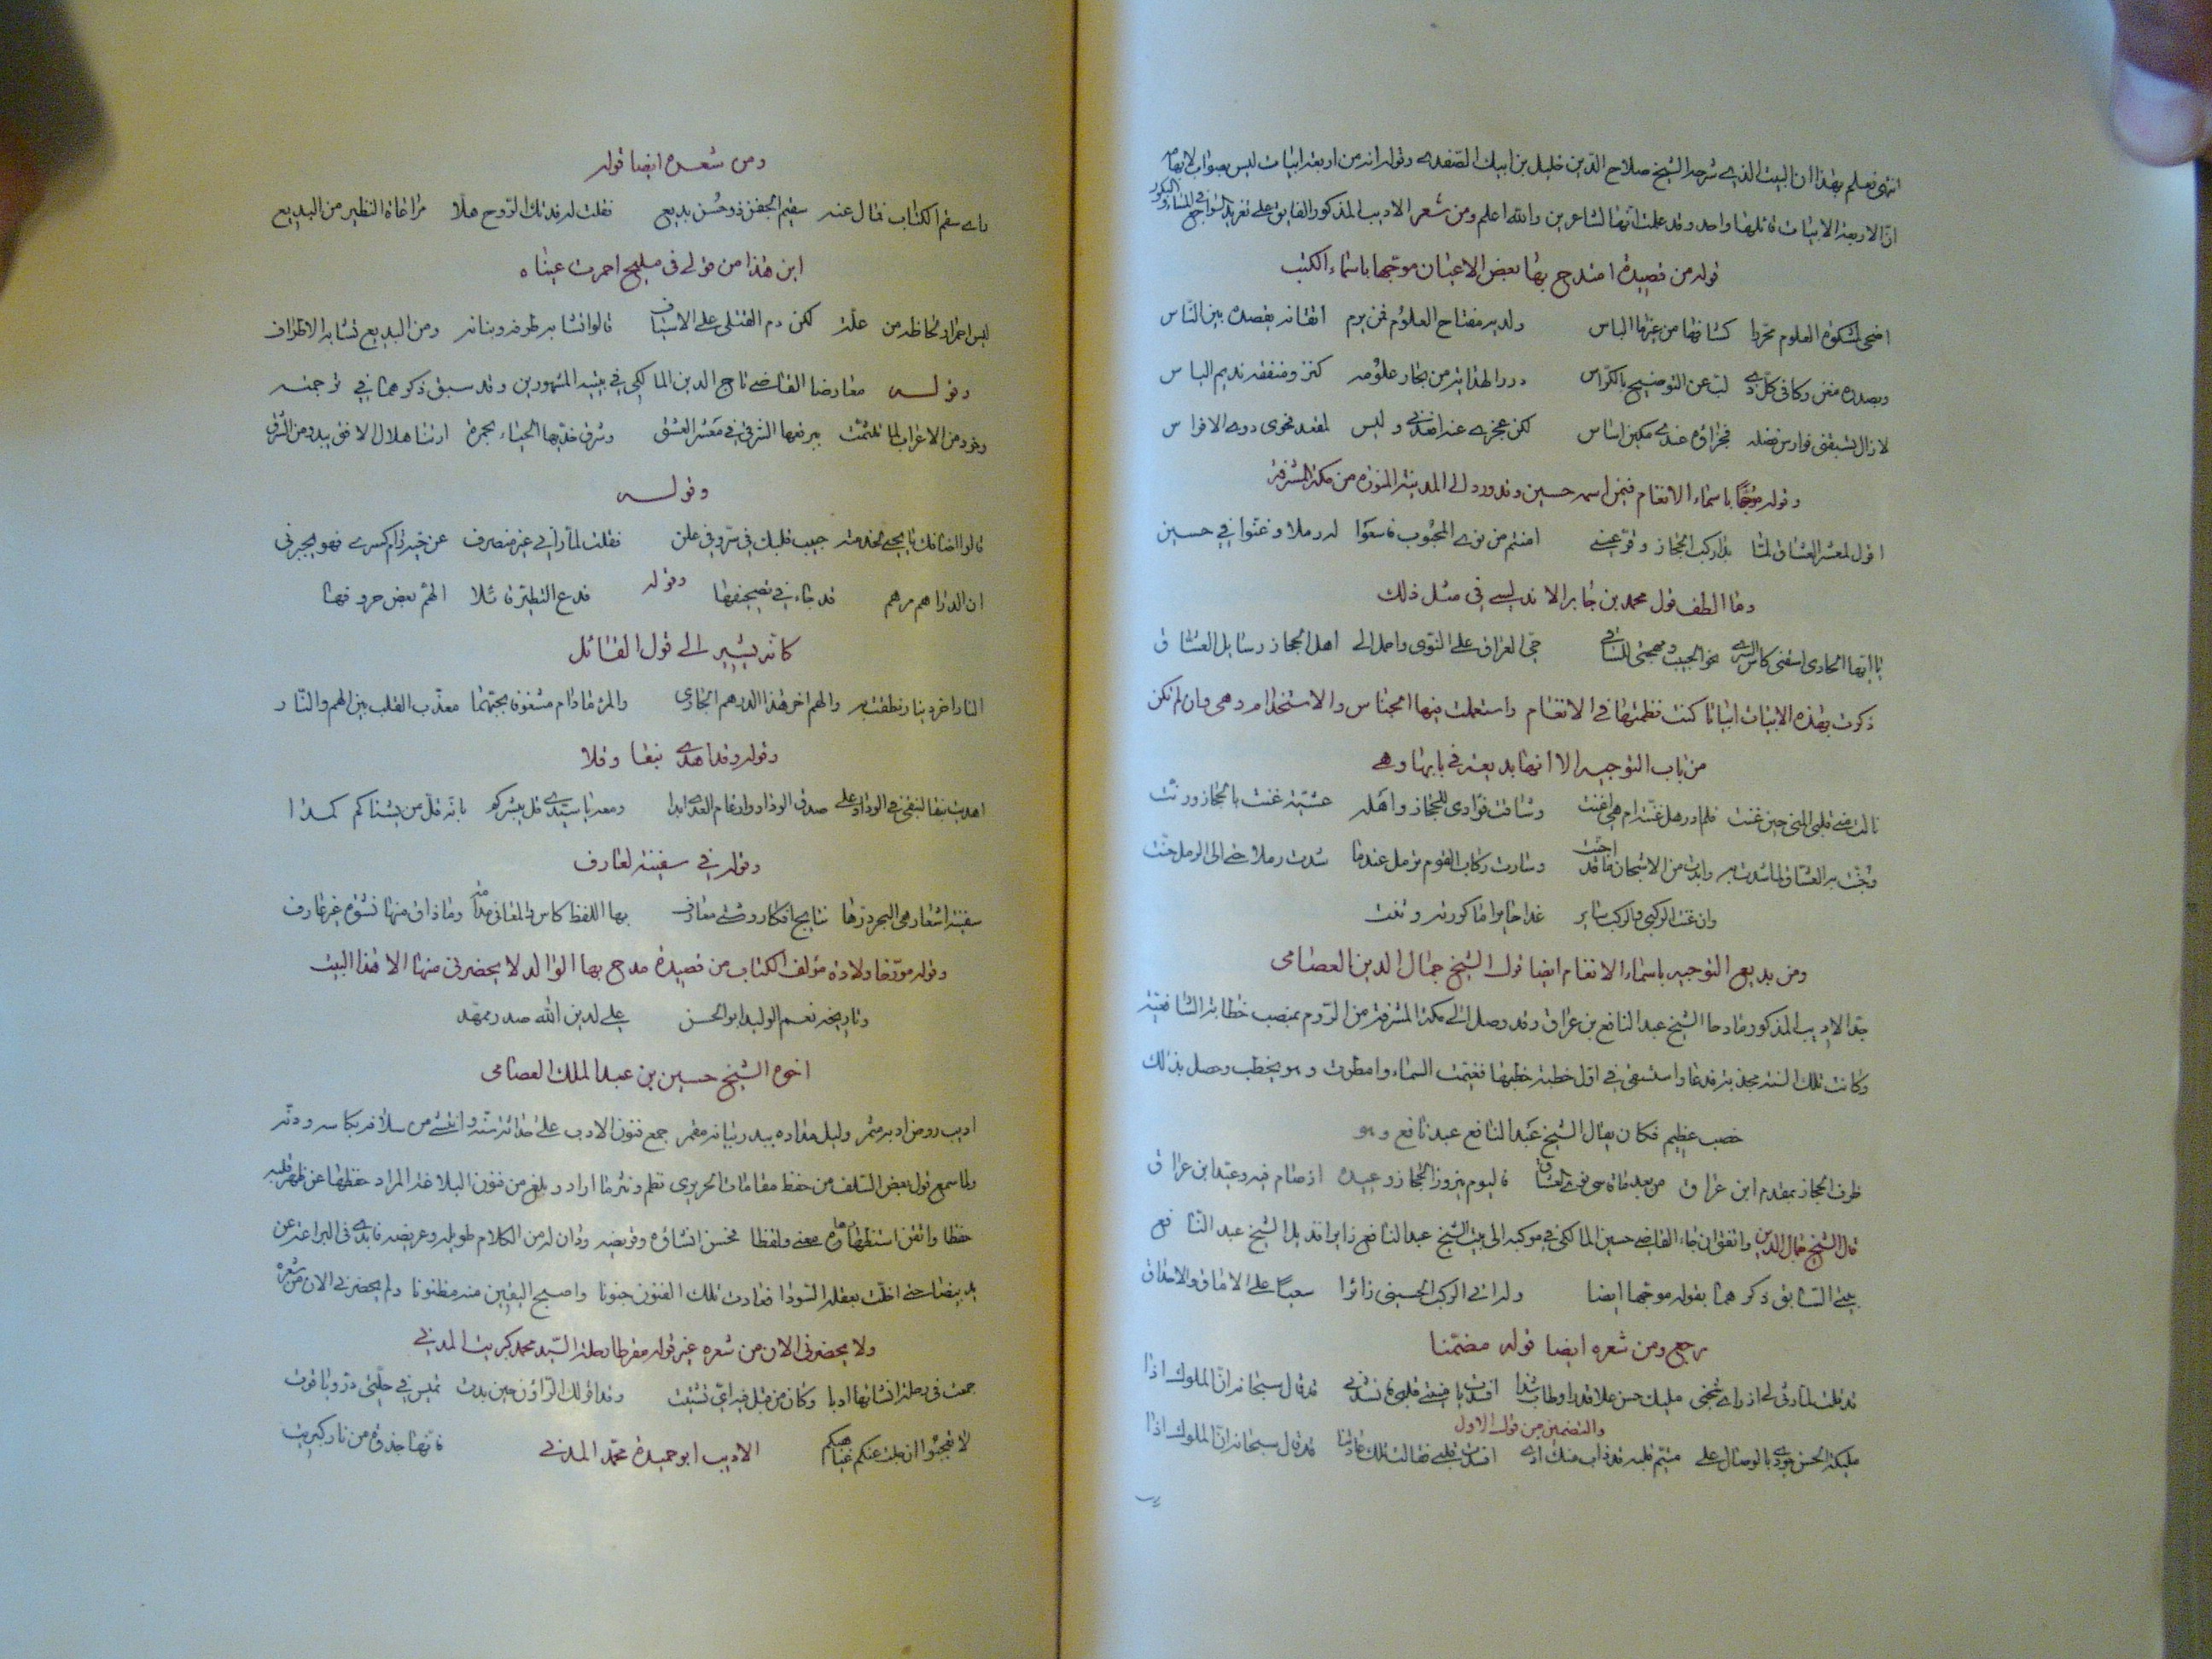 انتهى فعلم بهذا ان البيت الذي شرحه الشيخ صلاح الدين خليل بن ايبك الصفدي وقوله انه من اربعة ابيات ليس بصواب لايهامه
ان الاربعة الابيات قائلها واحد وقد علمت انها لشاعرين والله اعلم ومن شعر الاديب المذكور الفايق على تغريد السواجع في المساء والبكور
قوله من قصيدة امتدح بها بعض الاعيان موجها باسماء الكتب
اضحى لمشكوة العلوم محررا كشافها من غيرما الباس ولديه مفتاح العلوم فمن يرم اتقانه يقصده بين الناس
وبصدره مغن وكافى كل ذي لب عن التوضيح بالكراس درر الهداية من بحار علومه كنز ومنفقه نديم الباس
لا زال تسبقنى فوارس فضله فجزاؤه عندي مكين اساس لكن عجزي عنه اقعدني وليس لمقعد نحوى ذوى الافراس
وقوله موجها باسماء الانغام فيمن اسمه حسين وقد ورد الى المدينة المنورة من مكة المشرفة
اقول لمعشر العشاق لما بدا ركب الحجاز وقر عيني امنتم من نوى المحبوب فاسعوا له رملا وغنوا في حسين
وما الطف قول محمد بن جابر الاندلسي في مثل ذلك
يا ايها الحادى اسقنى كاس السرى نحو الحبيب ومهجتى للساقي حى العراق على النوى واحمل الى اهل الحجاز رسايل العشاق
ذكرت بهذه الابيات ابياتا كنت نظمتها في الانغام واستعملت فيها الجناس والاستخدام وهى وان لم تكن
من باب التوجيه الا انها بديعة في بابها وهى
نالت منى قلبى المنى حين غنت فلم ادر هل غنته ام هي اغنت وشاقت فؤادى للحجاز واهله عشية غنت بالحجاز ورنت
وغنت به العشاق لما شدت به وابدت من الاشجان ما قد اجنت وسارت ركاب القوم ترمل عندما شدت رملا حتى الى الرمل حنت
وان غنت الركبى والركب سائر غدا حايرا ما كورته وثنت
ومن بديع التوجيه باسماء الانغام ايضا قول الشيخ جمال الدين العصامى
جد الاديب المذكور مادحا الشيخ عبد النافع بن عراق وقد وصل الى مكة المشرفة من الروم بمنصب خطابة الشافعية
وكانت تلك السنة مجدبة فدعا واستسقى في اول خطبة خطبها فغيمت السماء وامطرت وهو يخطب وحصل بذلك
خصب عظيم فكان يقال الشيخ عبد النافع عبد نافع وهو
طرف الحجاز بمقدم ابن عراق من بعد ما قاسى نوى العشاق فاليوم نيروز الحجاز وعيده اذ صام فيه وعيد ابن عراق
قال الشيخ جمال الدين واتفق ان جاء القاضي حسين المالكى في موكبه الى بيت الشيخ عبد النافع زايرا فقد بدا الشيخ عبد النافع
بيتي السابق ذكرهما بقوله موجها ايضا ولدا تى الركب الحسينى زائرا سعيا على الاماق والاحداق
رجع ومن شعره ايضا قوله مضمنا
قد قلت لما رق لى اذ راى شجنى مليك حسن علا قدرا وطاب شذا افسدت يا منيتى قلبى فانشدني قد قال سبحانه ان الملوك اذا
والتضمين من قول الاول
مليكة الحسن جودي بالوصال على متيم قلبه قد ذاب منك اذى افسدت قلبي فقالت تلك عادتنا قد قال سبحانه ان الملوك اذا
ومن شعره ايضا قوله
راى سقم الكتاب فقال عنه سقيم الجفن ذو حسن بديع فقلت له فدتك الروح هلا مراعاة النظير من البديع
اين هذا من قولى في مليح احمرت عيناه
ليس احمرار لحاظه من علة لكن دم القتلى على الاسياف قالوا تشابه طرفه وبنانه ومن البديع تشابه الاطراف
وقوله معارضا القاضي تاج الدين المالكى في بيتيه المشهورين وقد سبق ذكرهما في ترجمته
وخود من الاعراب لما تلثمت ببرقعها الشرقى في معشر العشق وشرق خديها الحياء بحمرة ارتنا هلال الافق يبدو من الشرق
وقوله
قالوا اضافك يا يحيى لخدمته حبيب قلبك في سر وفى علن فقلت لما رانى غير منصرف عن حبه رام كسرى فهو يجبرنى
ان الدراهم مرهم قد جاء في تصحيفها وقوله فدع التطير قائلا الهم بعض حروفها
كانه يشير الى قول القائل
النار اخر دينار نطقت به والهم اخر هذا الدرهم الجارى والمرء ما دام مشغوفا بحبهما معذب القلب بين الهم والنار
وقوله وقد اهدى نبقا وفلا
اهديت نبقا لنبقى في الوداد على صدق الوداد وارغام العدى ابدا ومعه يا سيدى فل يبشركم بانه فل من يشناكم كمدا
وقوله في سفينة لعارف
سفينة اشعار هى البحر درها نتايج افكار روت عن معارف بها اللفظ كاس والمعانى مدامه وما ذاق منها نشوة غير عارف
وقوله مورخا ولادة مؤلف الكتاب من قصيدة مدح بها الوالد لا يحضرنى منها الا هذا البيت
وتاريخه نعم الوليد ابو الحسن على لدين الله صدر ممهد
اخوه الشيخ حسين بن عبد الملك العصامى
اديب روض ادبه مثمر وليل مداده ببدر بيانه مقمر جمع فنون الادب على حداثة سنه وانتشى من سلافه بكاسه ودنه
ولما سمع قول بعض السلف من حفظ مقامات الحريرى نظم ونثر ما اراد وبلغ من فنون البلاغة المراد حفظها عن ظهر قلبه
حفظا واتقن استظهارها معنى ولفظا فحسن انشاؤه وقريضه ودان له من الكلام طويله وعريضه فابدى في البراعة عن
يد بيضا حتى اخلت بعقله السودا فعادت تلك الفنون جنونا واصبح اليقين منه مظنونا ولم يحضرنى الان من شعره
ولا يحضرنى الان من شعره غير قوله مقرظا رحلة السيد محمد كبريت المدني
جمعت في رحلة انشاتها ادبا وكان من قبل فيه اي تشتيت وقد اقر لك الراؤن حين بدت تميس في حلتى در وياقوت
لا تعجبوا ان جلت عنكم غياهبكم فانها جذوة من نار كبريت الاديب ابو حميدة محمد المدني